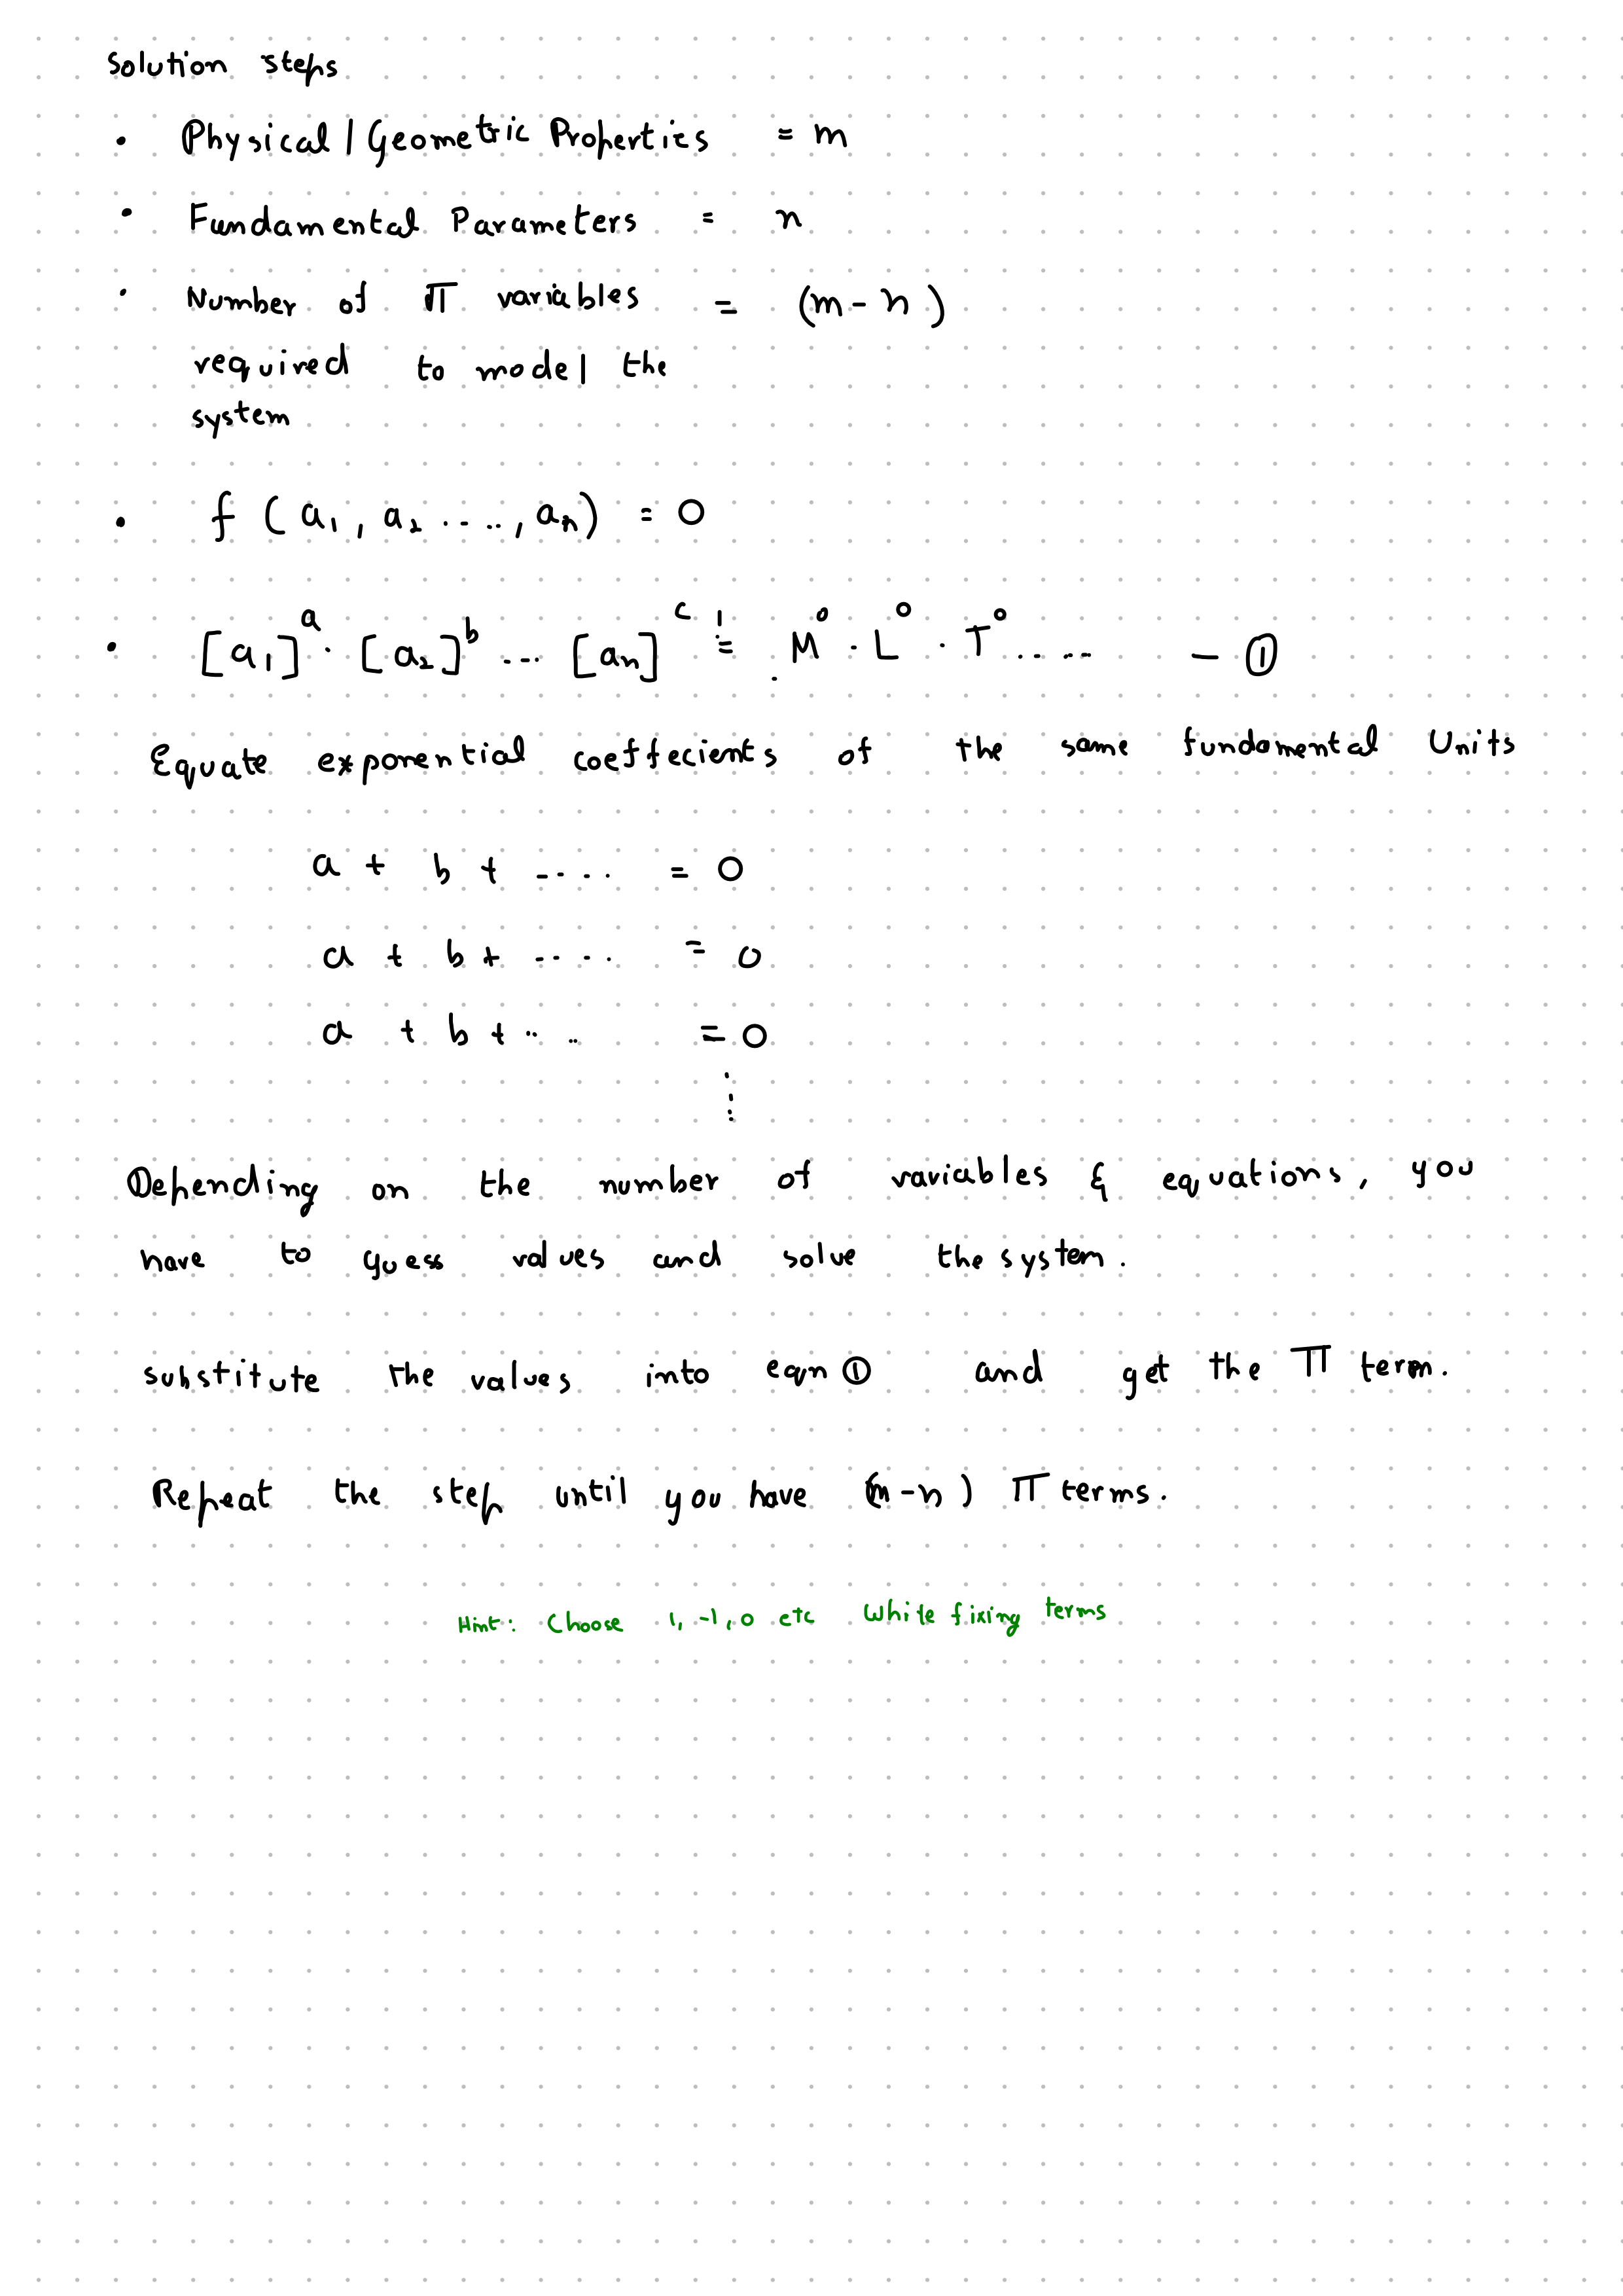 Solution steps
• Physical / Geometric Properties = m
• Fundamental Parameters = n
• Number of π variables = (m - n)
required to model the
system
• f (a₁, a₂ ....., aₙ) = 0
• [a₁]ᵃ · [a₂]ᵇ .... [aₙ]ᶜ != M⁰ · L⁰ · T⁰ ..... — ①
Equate exponential coeffecients of the same fundamental Units
a + b + ..... = 0
a + b + ..... = 0
a + b + .... = 0
⋮
Depending on the number of variables & equations, you
have to guess values and solve the system.
substitute the values into eqn ① and get the π term.
Repeat the step until you have (m - n) π terms.
Hint: Choose 1, -1, 0 etc While fixing terms